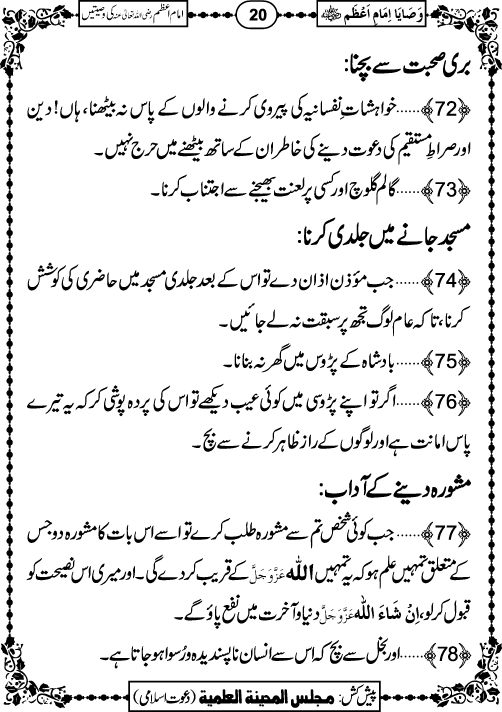 وَصَایَا اِمَامِ اَعْظَم
20
امام اعظم رضی اللہ تعالیٰ عنہ کی وصیتیں
بری صحبت سے بچنا:
﴿72﴾......خواہشاتِ نفسانیہ کی پیروی کرنے والوں کے پاس نہ بیٹھنا، ہاں! دین
اور صراطِ مستقیم کی دعوت دینے کی خاطر ان کے ساتھ بیٹھنے میں حرج نہیں۔
﴿73﴾......گالم گلوچ اور کسی پر لعنت بھیجنے سے اجتناب کرنا۔
مسجد جانے میں جلدی کرنا:
﴿74﴾...... جب مؤذن اذان دے تو اس کے بعد جلدی مسجد میں حاضری کی کوشش
کرنا، تاکہ عام لوگ تجھ پر سبقت نہ لے جائیں۔
﴿75﴾......بادشاہ کے پڑوس میں گھر نہ بنانا۔
﴿76﴾......اگر تو اپنے پڑوسی میں کوئی عیب دیکھے تو اس کی پردہ پوشی کر کہ یہ تیرے
پاس امانت ہے اور لوگوں کے راز ظاہر کرنے سے بچ۔
مشورہ دینے کے آداب:
﴿77﴾...... جب کوئی شخص تم سے مشورہ طلب کرے تو اسے اس بات کا مشورہ دو جس
کے متعلق تمہیں علم ہو کہ یہ تمہیں اللہ عَزَّوَجَلَّ کے قریب کر دے گی۔ اور میری اس نصیحت کو
قبول کر لو، اِنْ شَاءَ اللہ عَزَّوَجَلَّ دنیا و آخرت میں نفع پاؤ گے۔
﴿78﴾......اور بخل سے بچ کہ اس سے انسان ناپسندیدہ و رُسوا ہو جاتا ہے۔
پیش کش: مجلس المدینة العلمیة (دعوت اسلامی)